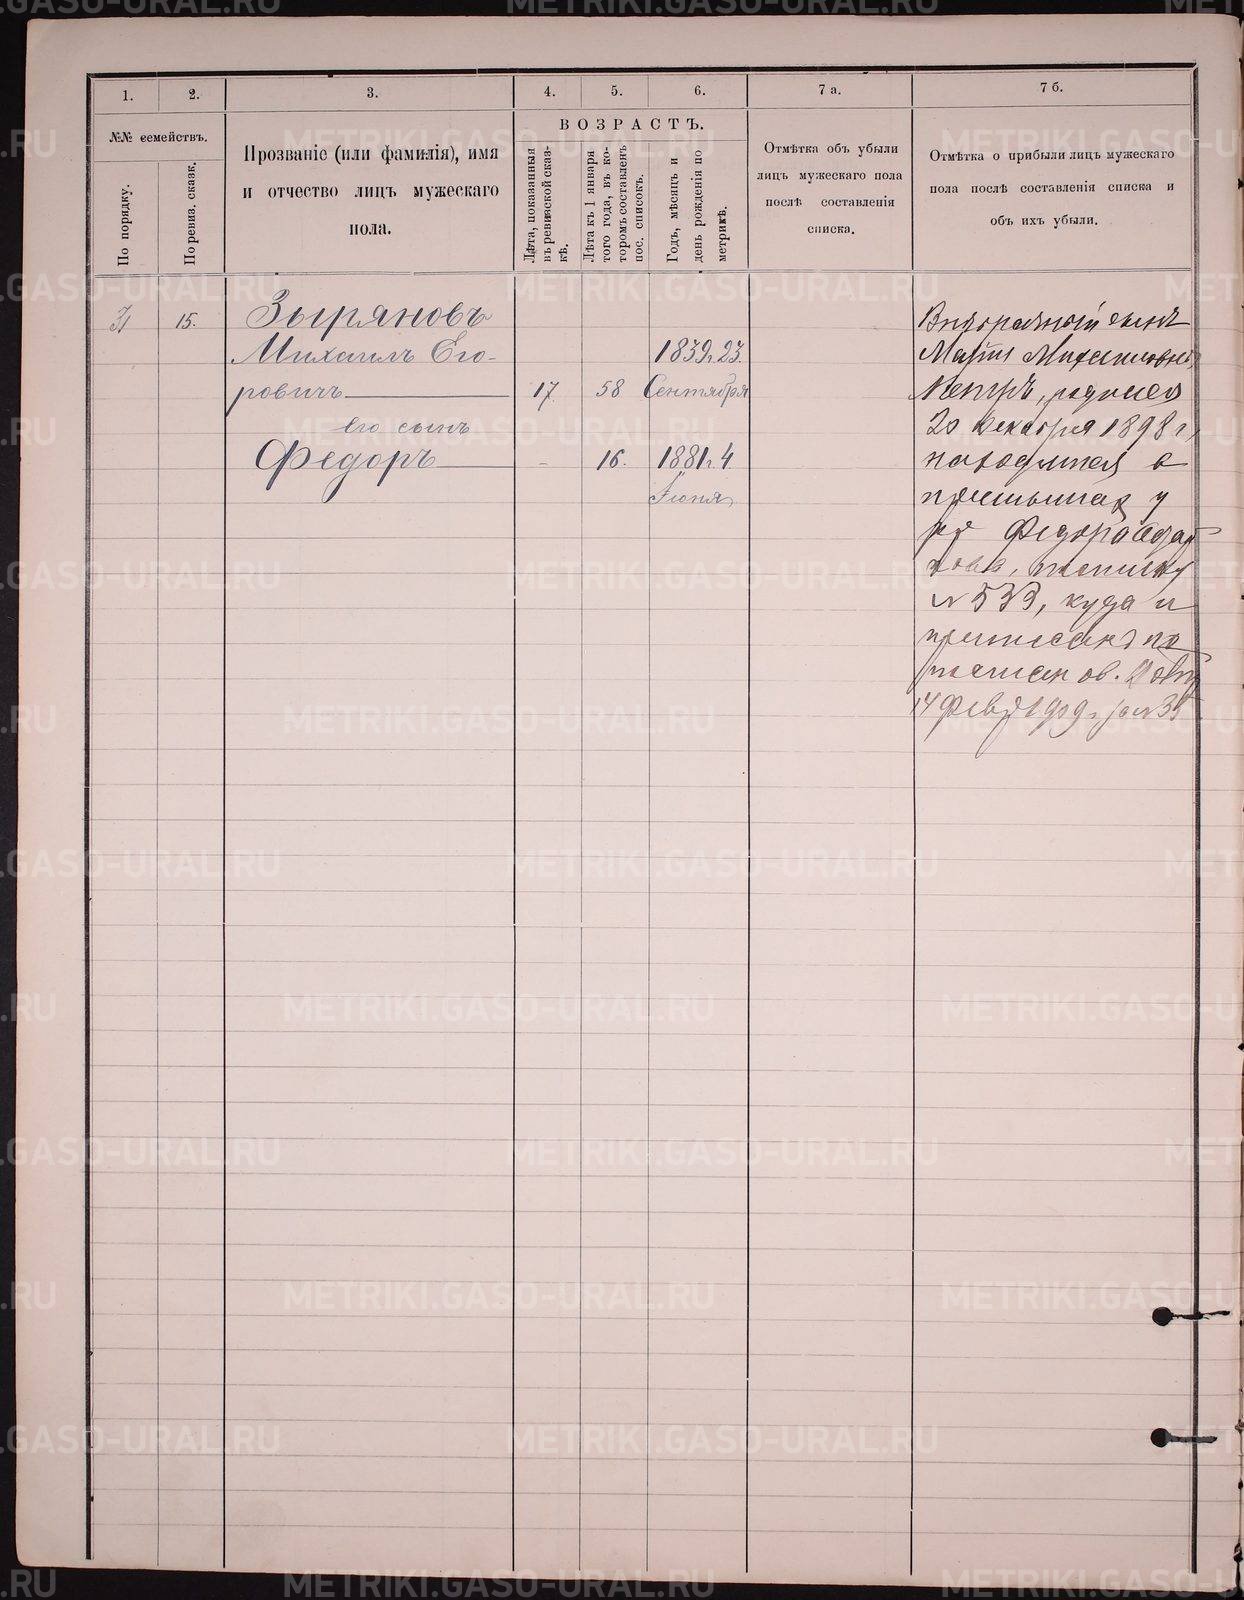 1.
2.
3.
4.
5.
6.
7 а.
7 б.
№№ семействъ.
По порядку.
По ревиз. сказк.
Прозваніе (или фамилія), имя
и отчество лицъ мужескаго
пола.
ВОЗРАСТЪ.
Лѣта, показанныя
въ ревизской сказ-
кѣ.
Лѣта къ 1 января
того года, въ ко-
торомъ составленъ
пос. списокъ.
Годъ, мѣсяцъ и
день рожденія по
метрикѣ.
Отмѣтка объ убыли
лицъ мужескаго пола
послѣ составленія
списка.
Отмѣтка о прибыли лицъ мужескаго
пола послѣ составленія списка и
объ ихъ убыли.
31
15.
Зыряновъ
Михаилъ Его-
ровичъ
17
58
1839 г. 23
Сентября
его сынъ
Федоръ
-
16.
1881 г. 4
Іюня
Внѣбрачный сынъ
Маріи Михаиловны
Петръ, родился
20 декабря 1898 г,
находится в
приемышах у
Федора
№ 533, куда и
приписанъ по
14 Февр 1909 г за № 35
METRIKI.GASO-URAL.RU